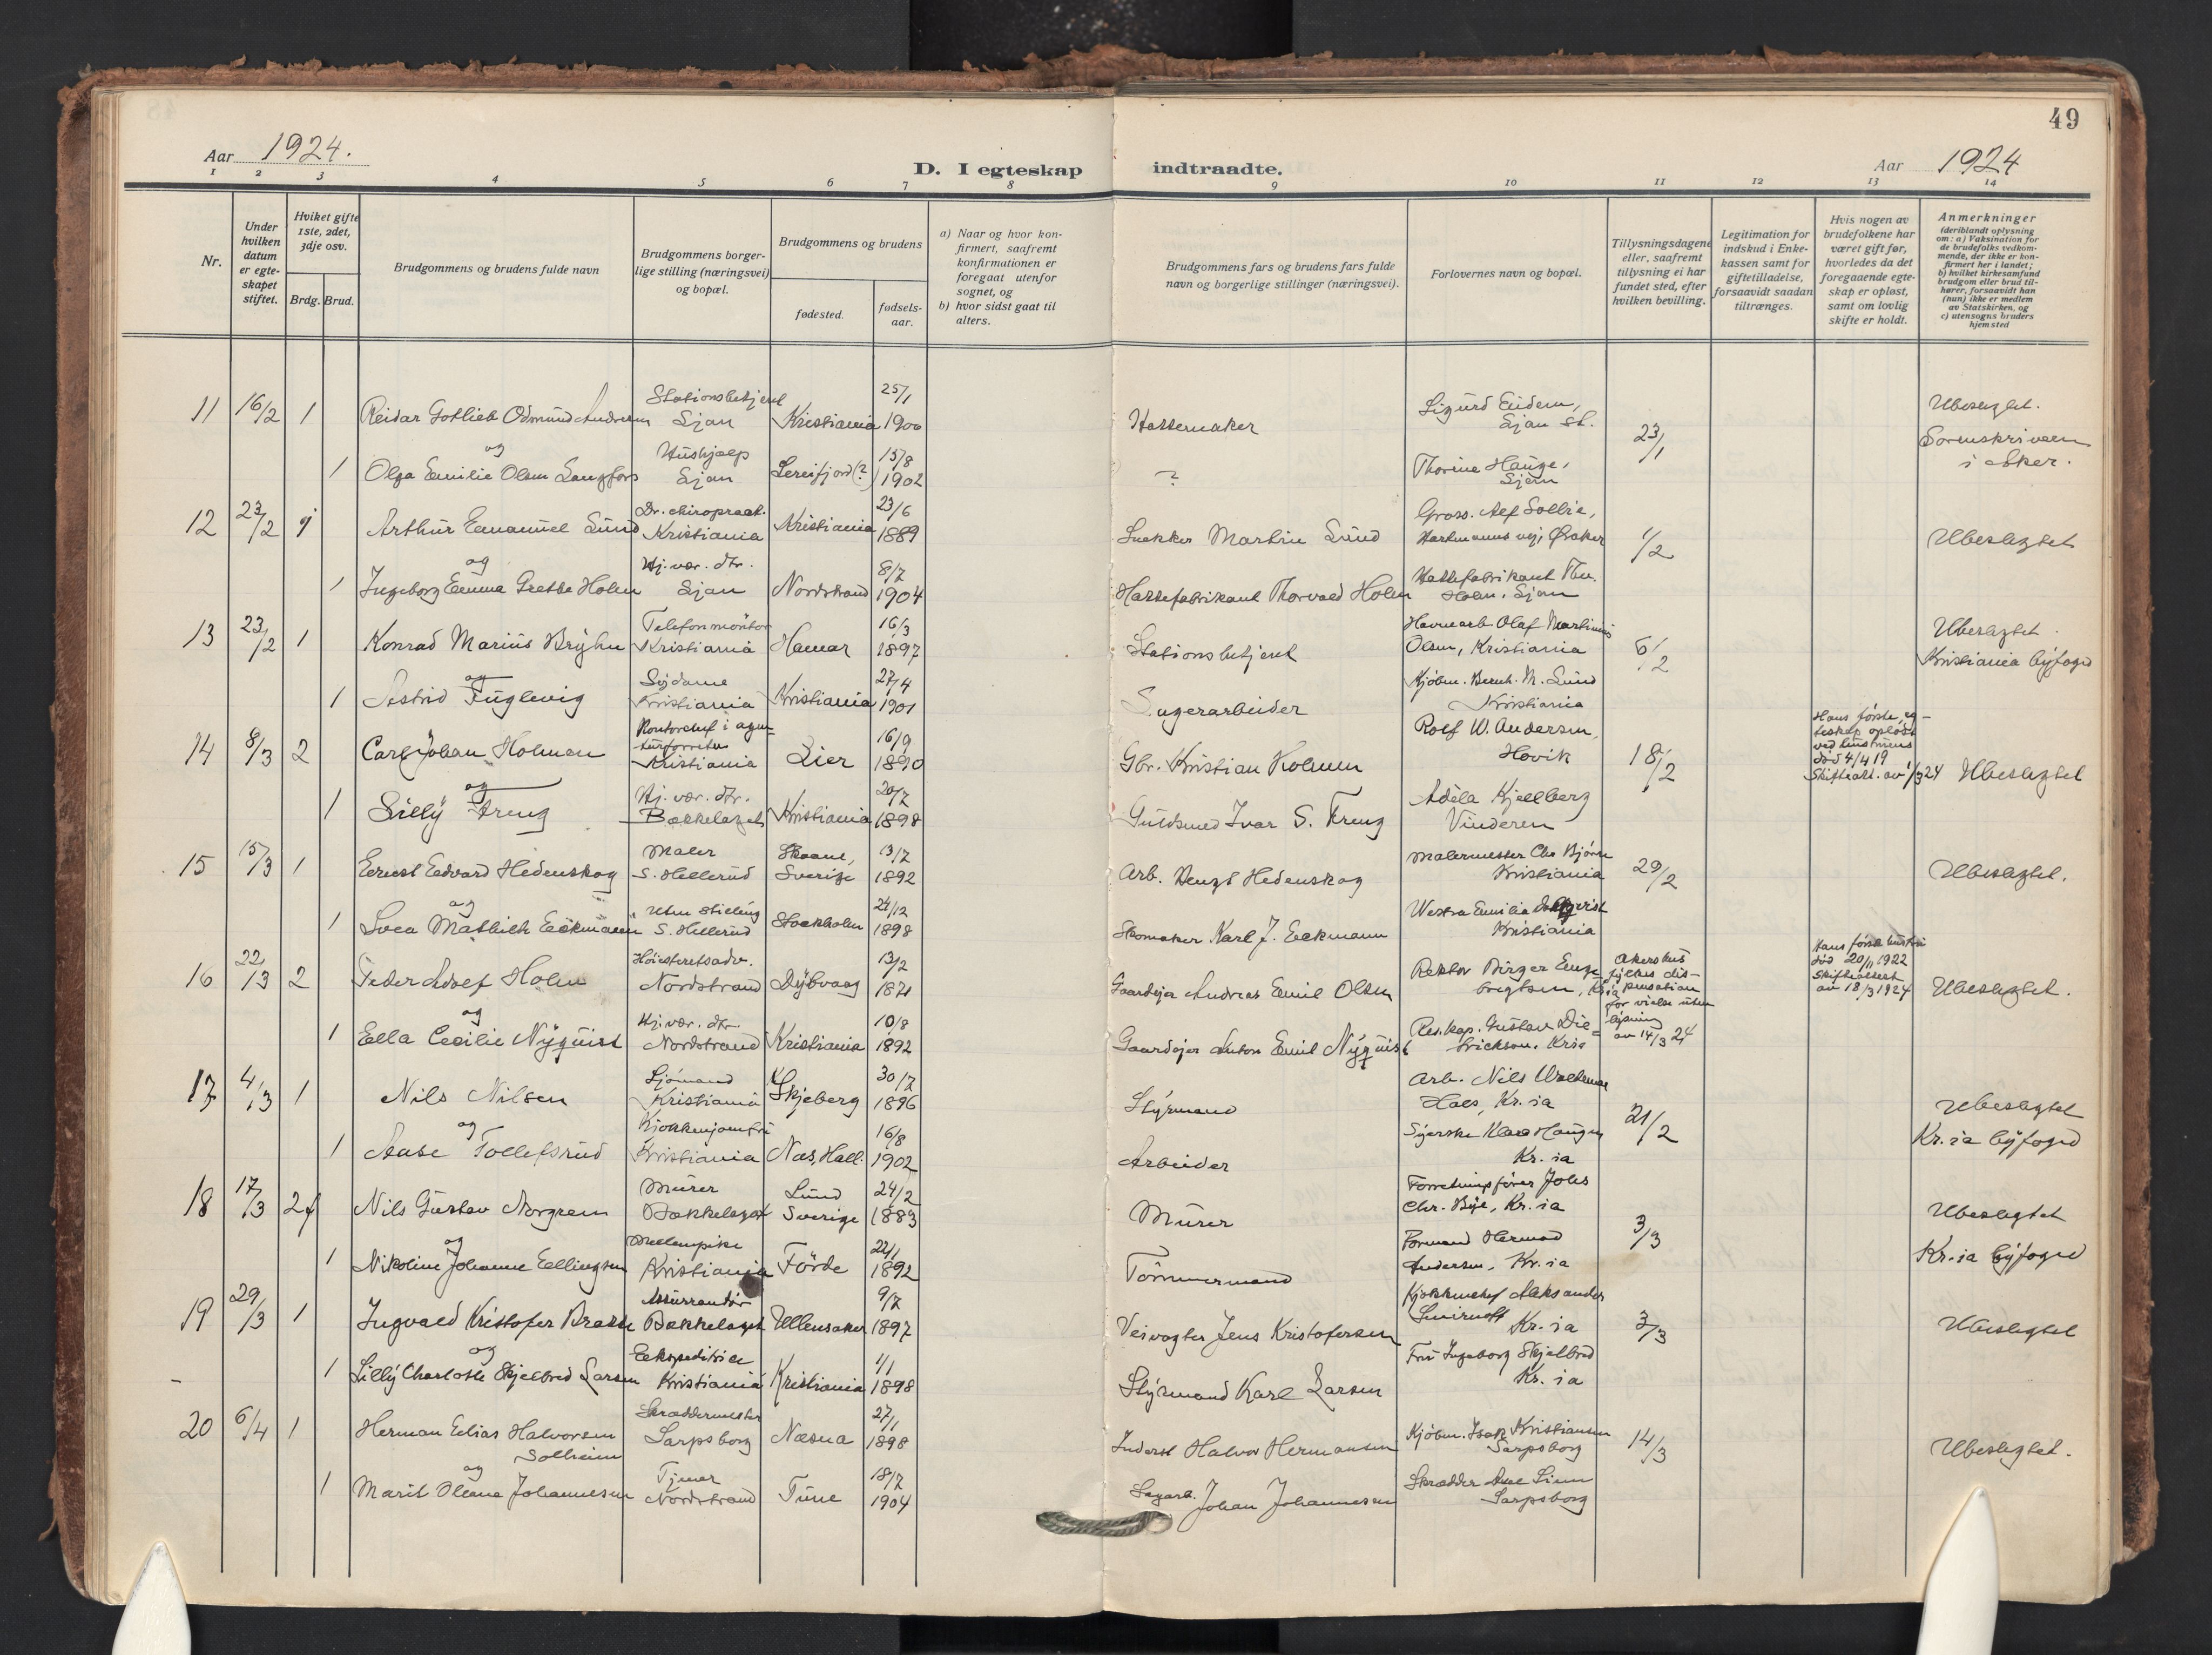 49
Aar 1924.
D. I egteskap indtraadte.
Aar 1924
1 2 3 4 5 6 7 8 9 10 11 12 13 14
Nr.
Under hvilken datum er egteskapet stiftet.
Hviket gifte 1ste, 2det, 3dje osv.
Brdg. Brud.
Brudgommens og brudens fulde navn
Brudgommens borgerlige stilling (næringsvei) og bopæl.
Brudgommens og brudens
fødested.
fødsels-aar.
a) Naar og hvor konfirmert, saafremt konfirmationen er foregaat utenfor sognet, og
b) hvor sidst gaat til alters.
Brudgommens fars og brudens fars fulde navn og borgerlige stillinger (næringsvei).
Forlovernes navn og bopæl.
Tillysningsdagene eller, saafremt tillysning ei har fundet sted, efter hvilken bevilling.
Legitimation for indskud i Enkekassen samt for giftetilladelse, forsaavidt saadan tiltrænges.
Hvis nogen av brudefolkene har været gift før, hvorledes da det foregaaende egteskap er opløst, samt om lovlig skifte er holdt.
Anmerkninger (deriblandt oplysning om: a) Vaksination for de brudefolks vedkommende, der ikke er konfirmert her i landet; b) hvilket kirkesamfund brudgom eller brud tilhører, forsaavidt han (hun) ikke er medlem av Statskirken, og c) utensogns bruders hjemsted
11 16/2 1 Reidar Gotlieb Odmund Andersen Stationsbetjent Ljan Kristiania 25/1 1900 Hattemaker Sigurd Eidem, Ljan st. 23/1 Ubeslegtet. Sorenskriveren i Aker.
og
1 Olga Emilie Olsen Langfors Hushjælp Ljan Lereifjord (?) 15/8 1902 ? Thorine Hauge, Ljan
12 23/2 1 Arthur Emanuel Lund Dr. chiropract. Kristiania Kristiania 23/6 1889 Snekker Martin Lund Gross. Alf Sollie, Hartmanns vei, Øraker 1/2 Ubeslegtet
og
1 Ingeborg Emma Grethe Holm Hj.vær. dtr. Ljan Nordstrand 8/7 1904 Hattefabrikant Thorvald Holm Hattefabrikant Thv. Holm, Ljan
13 23/2 1 Konrad Marius Bryhn Telefonmontør Kristiania Hamar 16/3 1897 Stationsbetjent Havnearb. Olaf Martinius Olsen, Kristiania 6/2 Ubeslegtet. Kristiania byfoged
og
1 Astrid Fuglevig Sydame Kristiania Kristiania 27/4 1901 Lagerarbeider Kjøbm. Bernh. M. Lund Kristiania
14 8/3 2 Carl Johan Holmen Kontorchef i agenturforretn. Kristiania Lier 16/9 1890 Gbr. Kristian Holmen Rolf W. Andersen, Høvik 18/2 Hans første egteskap opløst ved hustruens død 4/4 19 Skifteatt. av 1/3 24 Ubeslegtet
og
1 Lilly Freng Hj.vær. dtr. Bækkelaget Kristiania 20/7 1898 Guldsmed Ivar S. Freng Adèla Kjellberg Vinderen
15 15/3 1 Ernst Edvard Hedenskog Maler S. Hellerud Skaane, Sverige 13/7 1892 Arb. Bengt Hedenskog Malermester Chr Bjørn Kristiania 29/2 Ubeslegtet.
og
1 Svea Mathilde Eckmann Uten stilling S. Hellerud Stockholm 24/12 1898 Skomaker Karl J. Eckmann Emilia Kristiania
16 22/3 2 Peder Adolf Holm Høiesteretsadv. Nordstrand Dybvaag 13/2 1871 Gaardeier Andreas Emil Olsen Rektor Birger Enge- bregtsen, Kria Akershus fylkes dispensation for vielse uten lysning av 14/3 24 Hans første hustru død 20/11 1922 Skifteattest av 18/3 1924 Ubeslegtet.
og
1 Ella Cecilie Nyquist Hj.vær. dtr. Nordstrand Kristiania 10/8 1892 Gaardeier Anton Emil Nyquist Res.kap. Gustav Die- Kria
17 4/3 1 Nils Nilsen Sjømand Kristiania Skjeberg 30/7 1896 Styrmand Arb. Nils Waldemar Kr.ia 21/2 Ubeslegtet Kr.ia byfoged
og
1 Aase Tollefsrud Kjøkkenjomfru Kristiania Næs, Hall. 16/8 1902 Arbeider Syerske Klara Haugen Kr.ia
18 17/3 2 f Nils Gustav Norgren Murer Bækkelaget Lund Sverige 24/2 1883 Murer Forretningsfører Johs Chr. Bye, Kr.ia 3/3 Ubeslegtet Kr.ia byfoged
og
1 Nikoline Johanne Ellingsen Mellempike Kristiania Førde 22/1 1892 Tømmermand Formand Herman Andersen, Kr.ia
19 29/3 1 Ingvald Kristofer Assurandør Bækkelaget Ullensaker 9/7 1897 Veivogter Jens Kristofersen Kjøkkenchef Aleksander Smirnoff Kr.ia 3/3 Ubeslegtet
og
1 Lilly Charlotte Skjelbred Larsen Ekspeditrice Kristiania Kristiania 1/1 1898 Styrmand Karl Larsen Fru Ingeborg Skjelbred Kr.ia
20 6/4 1 Herman Elias Halvorsen Solheim Skræddermester Sarpsborg Næsna 27/1 1898 Inderst Halvor Hermansen Kjøbm. Isak Kristiansen Sarpsborg 14/3 Ubeslegtet.
og
1 Marit Oleana Johannesen Tjener Nordstrand Tune 18/7 1904 Sagarb. Johan Johannesen Skrædder Sarpsborg